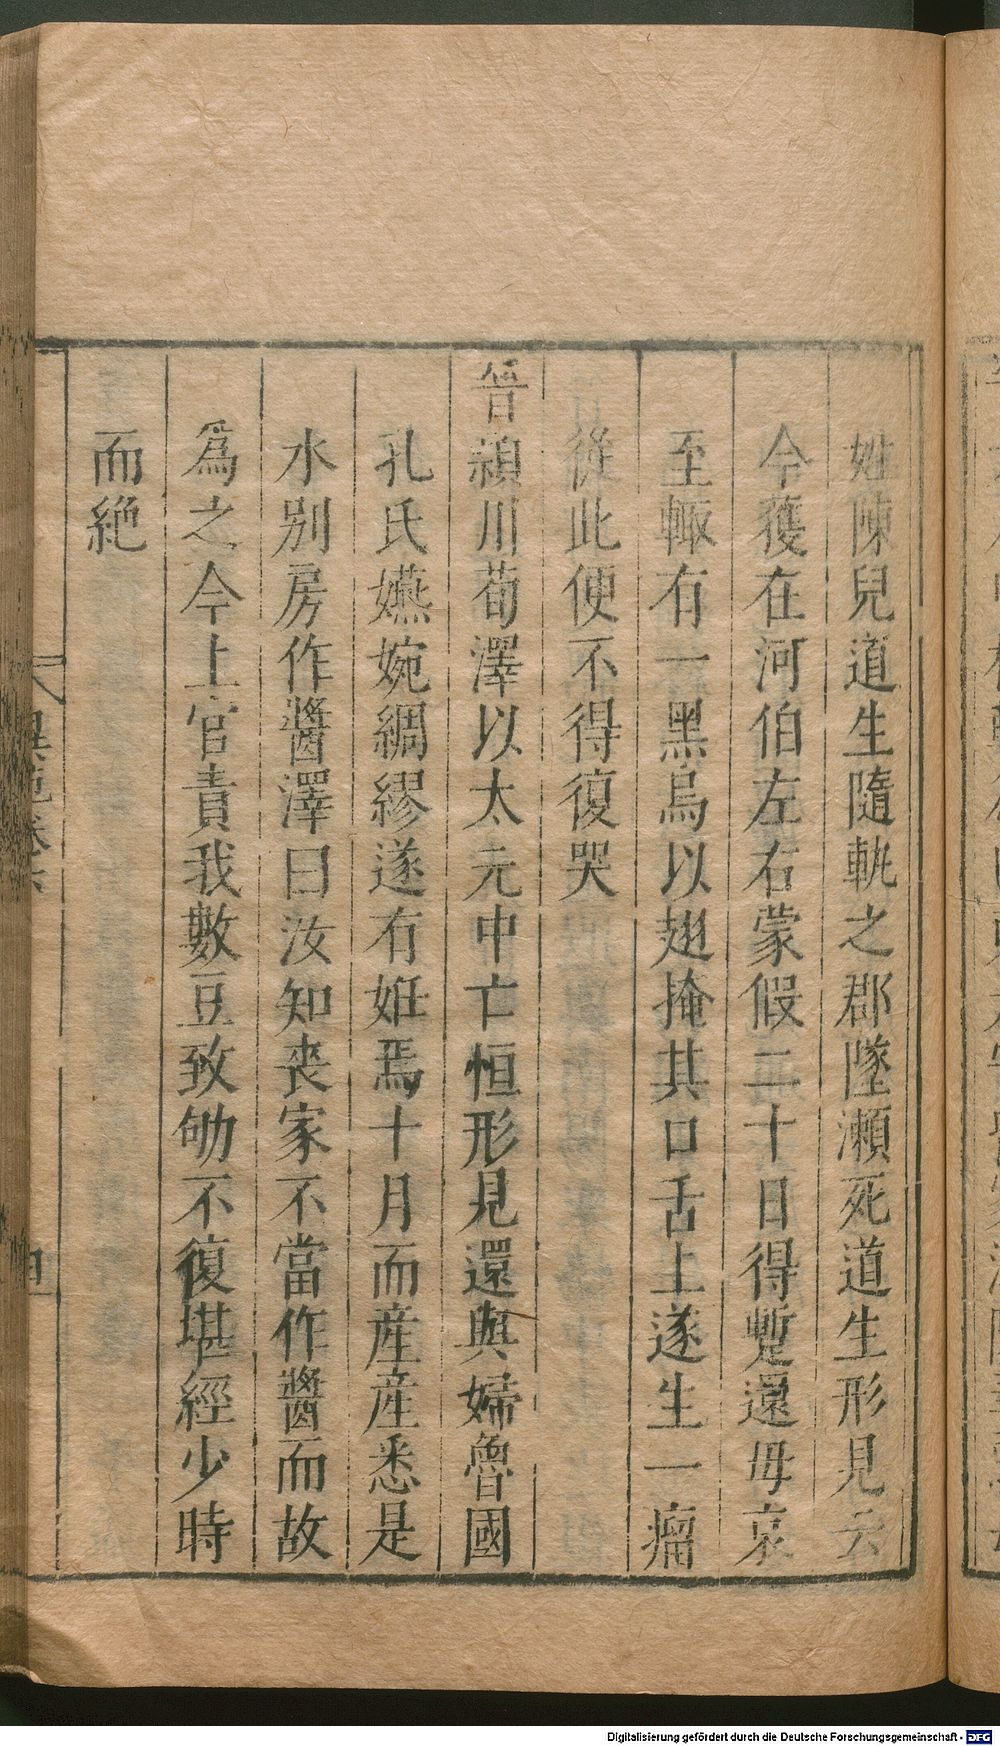 姓陳兒道生隨軌之郡墜瀨死道生形見云
今獲在河伯左右蒙假二十日得蹔還毋哀
至輙有一黑烏以翅掩其口舌上遂生一瘤
從此便不得復哭
晉潁川荀澤以太元中亡恒形見還與婦魯國
孔氏嬿婉綢繆遂有姙焉十月而産産悉是
水别房作醬澤曰汝知喪家不當作醬而故
爲之今上官責我數豆致劬不復堪經少時
而絶
異苑卷六
Digitalisierung gefördert durch die Deutsche Forschungsgemeinschaft - DFG